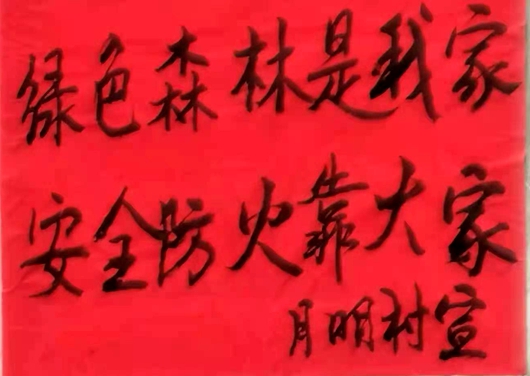 绿色森林是我家
安全防火靠大家
月明村宣